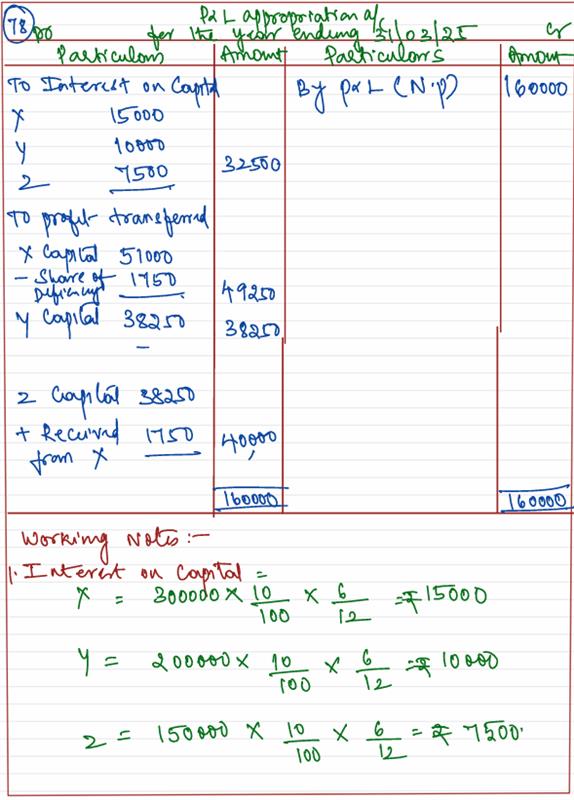 78
P&L appropriation a/c
Dr for the year ending 31/03/25 Cr
Particulars Amount Particulars Amount
To Interest on Capital By P&L (N.p) 160000
X 15000
Y 10000
Z 7500 32500
To profit transferred
X Capital 51000
- Share of Deficiency 1750 49250
Y Capital 38250 38250
-
Z Capital 38250
+ Received from X 1750 40000
160000 160000
Working Notes :-
1. Interest on Capital =
X = 300000 × 10/100 × 6/12 = ₹ 15000
Y = 200000 × 10/100 × 6/12 = ₹ 10000
Z = 150000 × 10/100 × 6/12 = ₹ 7500.